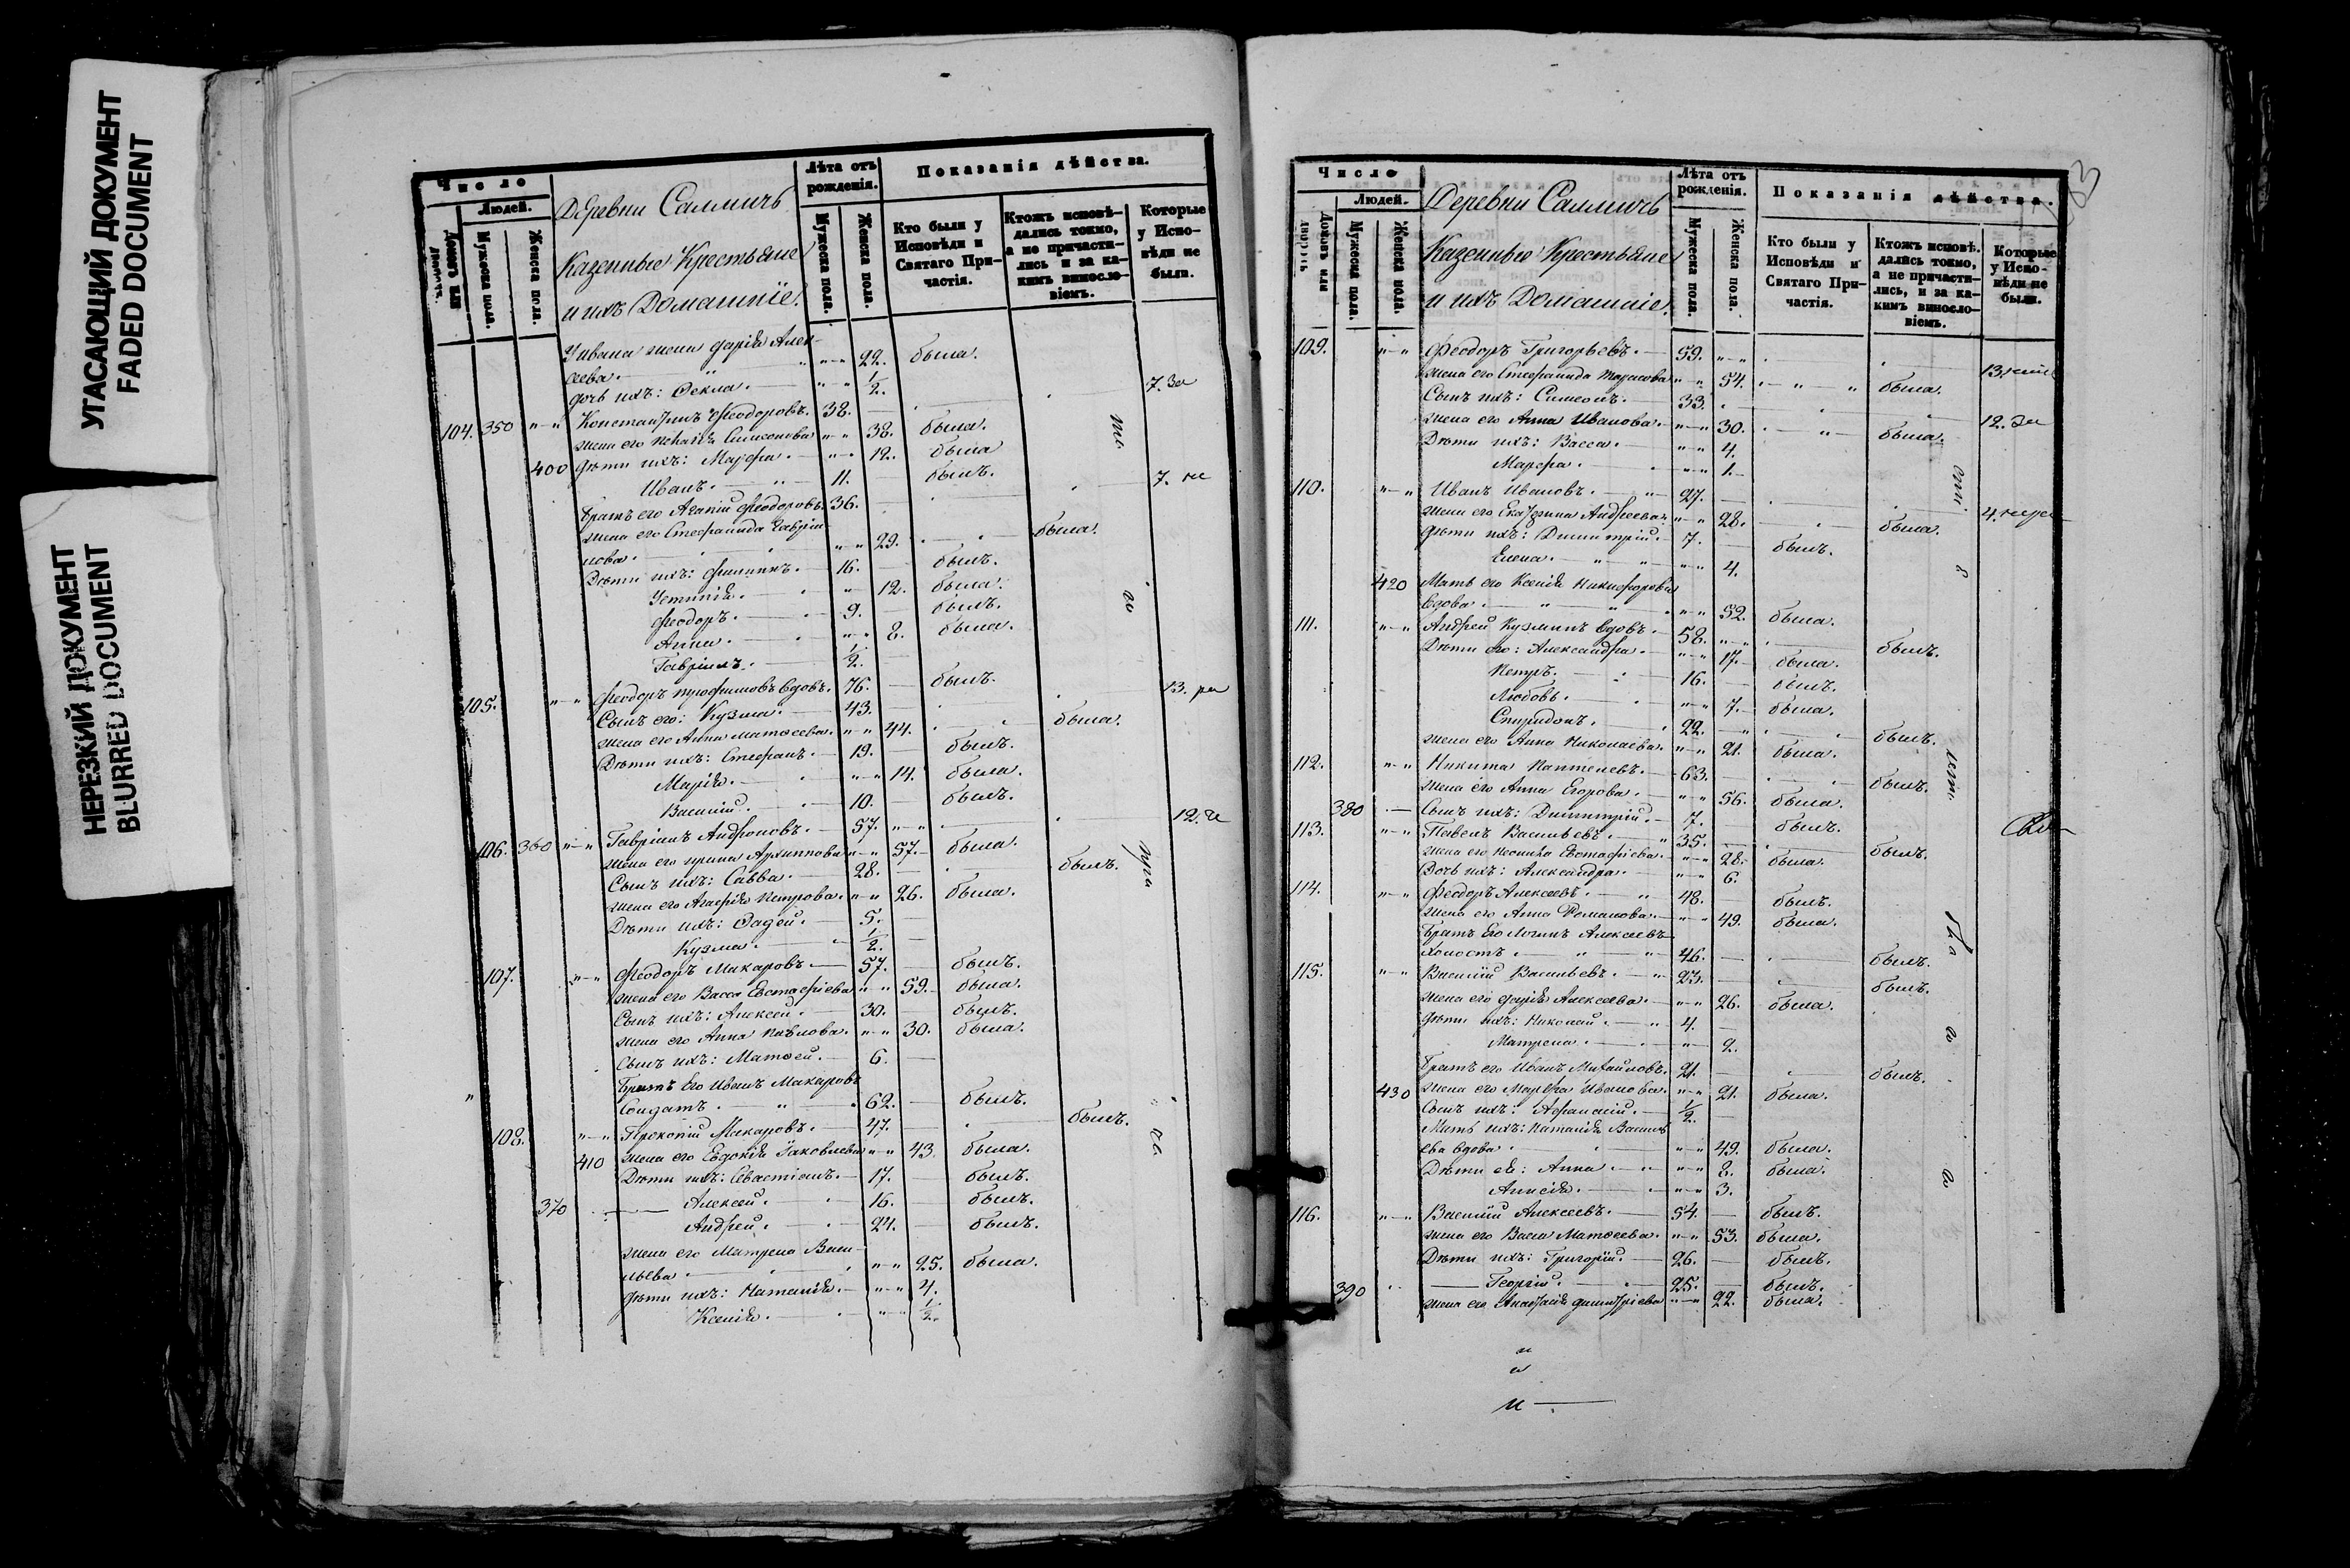 УГАСАЮЩИЙ ДОКУМЕНТ
FADED DOCUMENT
НЕРЕЗКИЙ ДОКУМЕНТ
BLURRED DOCUMENT
Число
Людей.
Домовъ или дворовъ.
Мужеска пола.
Женска пола.
Деревни Салличъ
Казенные Крестьяне
и ихъ Домашніе.
Лѣта отъ рожденія.
Мужеска пола.
Женска пола.
Показанія дѣйства.
Кто были у Исповѣди и Святаго Причастія.
Ктожъ исповѣдались токмо, а не причастились и за какимъ винословіемъ.
Которые у Исповѣди не были.
У Ивана жена Дарія Алек-
сѣева. 22. была.
Дочь ихъ: Өекла. 1/2.
104. 350 Константинъ Феодоровъ. 38. 7. за
жена его Симеонова 38. была.
400 Дѣти ихъ: Марфа. 12. была
Иванъ. 11. былъ.
Братъ его Агапій Феодоровъ. 36. 7. не
жена его Стефанида Гаврі-
лова. 29. была.
Дѣти ихъ: Филиппъ. 16. былъ.
Устинія. 12. была.
Феодоръ. 9. былъ.
Анна. 8. была.
Гавріилъ. 1/2.
105. Феодоръ Трофимовъ вдовъ. 76. былъ.
Сынъ его: Кузма. 43. 13. ра
жена его Анна Матѳеева. 44. была.
Дѣти ихъ: Стефанъ. 19. былъ.
Марія. 14. была.
Василій. 10. былъ.
106. 360 Гавріилъ Андроновъ. 57. 12.
жена его Ирина Архиппова 57. была.
Сынъ ихъ: Савва. 28. былъ.
жена его Агафія Петрова. 26. была.
Дѣти ихъ: Ѳадей. 5.
Кузма. 1/2.
107. Феодоръ Макаровъ. 57. былъ.
жена его Васса Евстафіева 59. была.
Сынъ ихъ: Алексей. 30. былъ.
жена его Анна Павлова. 30. была.
Сынъ ихъ: Матѳей. 6.
Братъ Его Иванъ Макаровъ
Солдатъ. 62. былъ.
108. Прокопій Макаровъ. 47. былъ.
410 жена его Евдокія Іаковлева 43. была.
Дѣти ихъ: Севастіанъ. 17. былъ.
370 Алексей. 16. былъ.
Андрей. 24. былъ.
жена его Матрена Васи-
льева 25. была.
Дѣти ихъ: Наталія. 4.
Ксенія. 1/2.
Число
Людей.
Домовъ или дворовъ
Мужеска пола.
Женска пола.
Деревни Салличъ
Казенные Крестьяне
и ихъ Домашніе.
Лѣта отъ рожденія.
Мужеска пола.
Женска пола.
Показанія дѣйства.
Кто были у Исповѣди и Святаго Причастія.
Ктожъ исповѣдались токмо, а не причастились, и за какимъ винословіемъ.
Которые у Исповѣди не были.
109. Феодоръ Григорьевъ. 59. 13.
жена его Стефанида Тарасова 54. была.
Сынъ ихъ: Симеонъ. 33. 12. За
жена его Анна Иванова. 30. была.
Дѣти ихъ: Васса. 4.
Марфа. 1.
110. Иванъ Ивановъ. 27. 4.
жена его Екатерина Андреева. 28. была.
Дѣти ихъ: Димитрій. 7. былъ.
Елена. 4.
420 Мать его Ксенія Никифорова
вдова. 52. была.
111. Андрей Кузминъ вдовъ. 58. былъ.
Дѣти его: Александра. 17. была.
Петръ. 16. былъ.
Любовь. 7. была.
Спиридонъ. 22. былъ.
жена его Анна Николаева. 21. была.
112. Никита Пантелеевъ. 63. былъ.
жена его Анна Егорова. 56. была.
380 Сынъ ихъ: Димитрій. 7. былъ.
113. Павелъ Васильевъ. 35. былъ.
жена его Евстафіева. 28. была.
Дочь ихъ: Александра. 6.
114. Феодоръ Алексеевъ. 48. былъ.
жена его Анна Романова. 49. была.
Братъ Его Логинъ Алексеевъ
Холостъ. 46. былъ.
115. Василій Васильевъ. 23. былъ.
жена его Дарія Алексеева. 26. была.
Дѣти ихъ: Николай. 4.
Матрена. 2.
Братъ его Иванъ Михайловъ. 21. былъ.
430 жена его Марфа Иванова. 21. была.
Сынъ ихъ: Афанасій. 1/2.
Мать ихъ: Наталія Василь
ева вдова. 49. была.
Дѣти ея: Анна. 8. была.
Анисія. 3.
116. Василій Алексеевъ. 54. былъ.
жена его Васса Матѳеева. 53. была.
Дѣти ихъ: Григорій. 26. былъ.
390 Георгій. 25. былъ.
жена его Анастасія Димитріева 22. была.